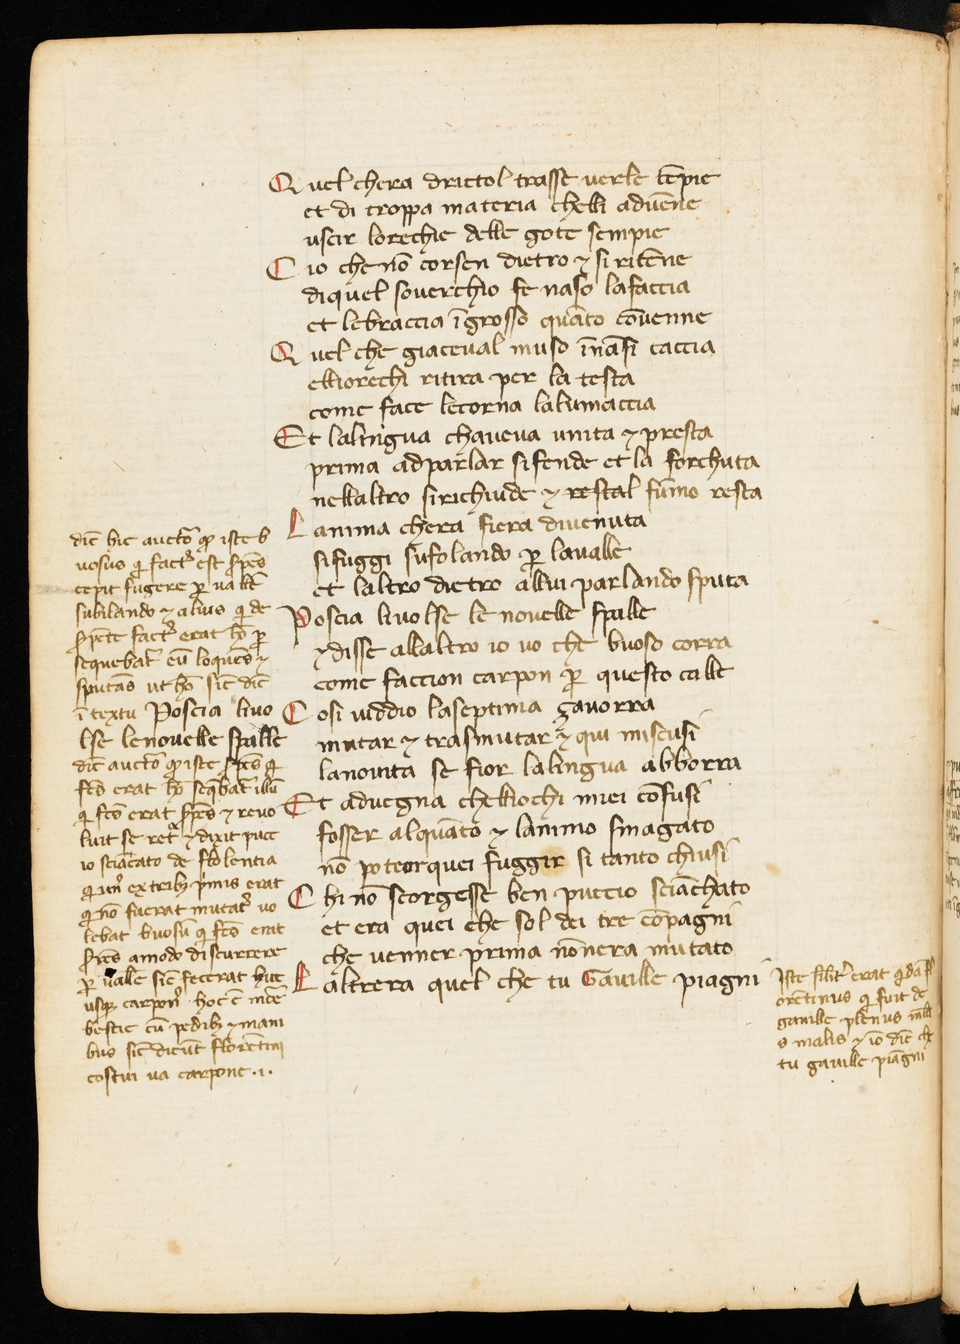 Quel chera drictol trasse uerle tēpie
et di troppa materia chelli aduēne
uscir lorechie delle gote sempie
Cio che nō corsen dietro ⁊ si ritēne
diquel souerchio fe naso lafaccia
et lebraccia īgrosso quāto cōuenne
Quel che giaceual muso īnāsi caccia
elliorechi ritira per la testa
come face lecorna lalumaccia
Et lalingua chaueua unita ⁊ presta
prima adparlar sifende et la forchuta
nellaltro sirichiude ⁊ restal fūmo resta
Lanima chera fiera diuenuta
sifuggi sufolando ꝑ laualle
et laltro dietro allui parlando sputa
Poscia liuolse le nouelle spalle
⁊disse allaltro io uo che buoso corra
come faccion carpon ꝑ questo calle
Cosi uiddio laseptima gauorra
mutar ⁊ trasmutar ⁊ qui miscusi
lanouita se fior lalingua abborra
Et aduegna chelliochi miei cōfusi
fosser alquāto ⁊ lanimo smagato
nō poteorquei fuggir si tanto chiusi
Chi nō scorgesse ben puccio sciāchato
et era quei che sol dei tre cōpagni
che uenner prima nōnera mutato
Laltrera quel che tu Gauille piagni
dic̄ hic auctō ꝙ iste b
uosus q̄ fact᾽ est sp̄es
cepit fugere ꝑ uallē
subilando ⁊ alius q̄ de
sp̄ēte fact᾽ erat hō ꝑ
sequebat᾽ eū loquēs ⁊
sputās ut hō sic̄ dic̄
ī textu Poscia liuo
lse lenouelle spalle
dic̄ auctō ꝙ iste sp̄es q̄
fc̄s erat hō seq̄bat᾽ illū
q̄ fc̄s erat sp̄es ⁊ reuo
luit se ret ⁊ dixit puc
io sciācato de florentia
q̄ un᾽ ex trib; p̄mis erat
q̄ nō fuerat mutat᾽ uo
lebat buosū q̄ fc̄s erat
sp̄es amodo discurrere
ꝑ ualle sic̄ fecerat huc
usq; carpon᾽ hoc ē
bestie cū pedib; ⁊ mani
bus sic̄ dicūt florētini
costui ua carpone .i.
Iste silit᾽ erat q̄dā fl
orētinus q̄ fuit de
gauille plenus
s malis ⁊ iō dic̄ che
tu gauille piāgni